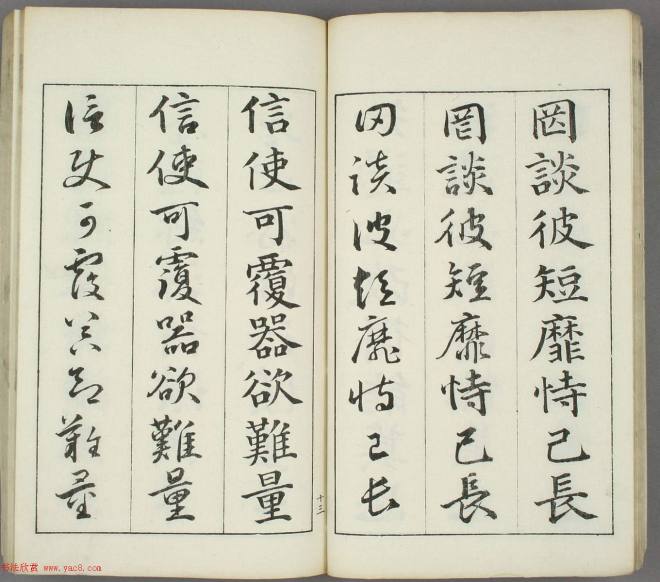 罔談彼短靡恃己長
罔談彼短靡恃己長
罔談彼短靡恃己長
十三
信使可覆器欲難量
信使可覆器欲難量
信使可覆器欲難量
书法欣赏 www.yac8.com